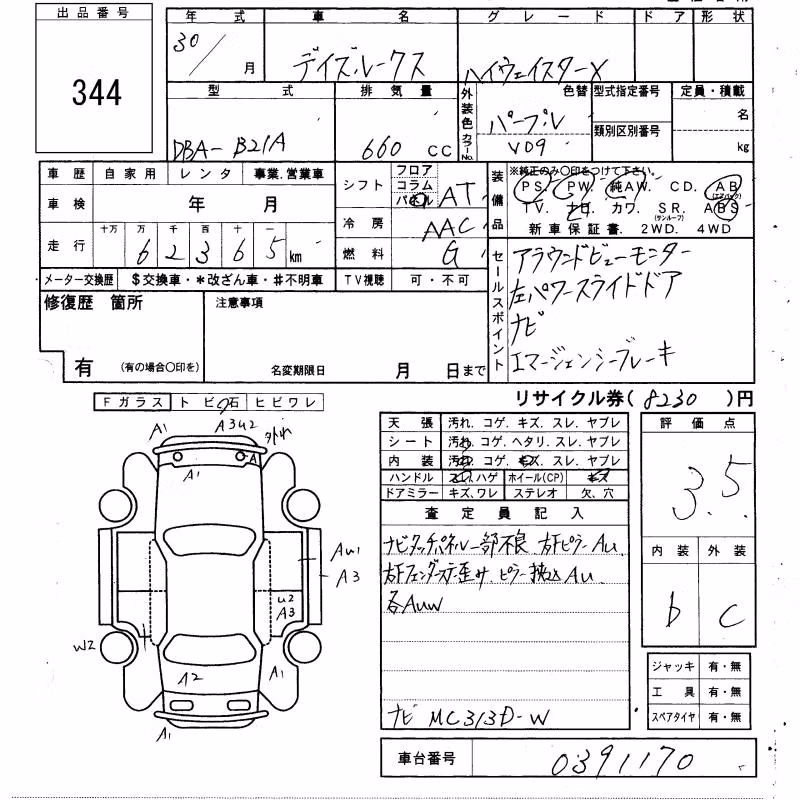 出品番号
344
年式 車名 グレード ドア 形状
30/ 月 デイズルークス ハイウェイスターX
型式 排気量 外装色 カラーNo. 色替 型式指定番号 定員・積載
パープル 名
類別区別番号
DBA- B21A 660 CC V09 kg
車歴 自家用 レンタ 事業.営業車
シフト フロア コラム パネル AT
装備品 ※純正のみ○印をつけて下さい。
PS. PW. 純AW. CD. AB (エアバック)
車検 年 月
冷房 AAC
TV. ナビ. カワ. SR. (サンルーフ) ABS
新車保証書. 2WD. 4WD
走行 十万 万 千 百 十 一
6 2 3 6 5 km
燃料 G
メーター交換歴 $交換車・*改ざん車・#不明車 TV視聴 可・不可
セールスポイント
アラウンドビューモニター
左パワースライドドア
ナビ
エマージェンシーブレーキ
修復歴 箇所 注意事項
有 (有の場合○印を) 名変期限日 月 日まで
リサイクル券( 8230 )円
Fガラス トビ石 ヒビワレ
A1 A3U2 外れ
A1 A
AU1
A3
U2
A3
W2
A2 A1
A1
天張 汚れ. コゲ. キズ. スレ. ヤブレ
シート 汚れ. コゲ. ヘタリ. スレ. ヤブレ
内装 汚れ. コゲ. キズ. スレ. ヤブレ
ハンドル スレ. ハゲ ホイール(CP) キズ
ドアミラー キズ. ワレ ステレオ 欠、穴
査定員記入
ナビタッチパネル一部不良 右Fピラー AU.
右Fフェンダーステー歪み、ピラー挟込AU
各AUW
ナビ MC313D-W
評価点
3.5
内装 外装
b C
ジャッキ 有・無
工具 有・無
スペアタイヤ 有・無
車台番号 0391170